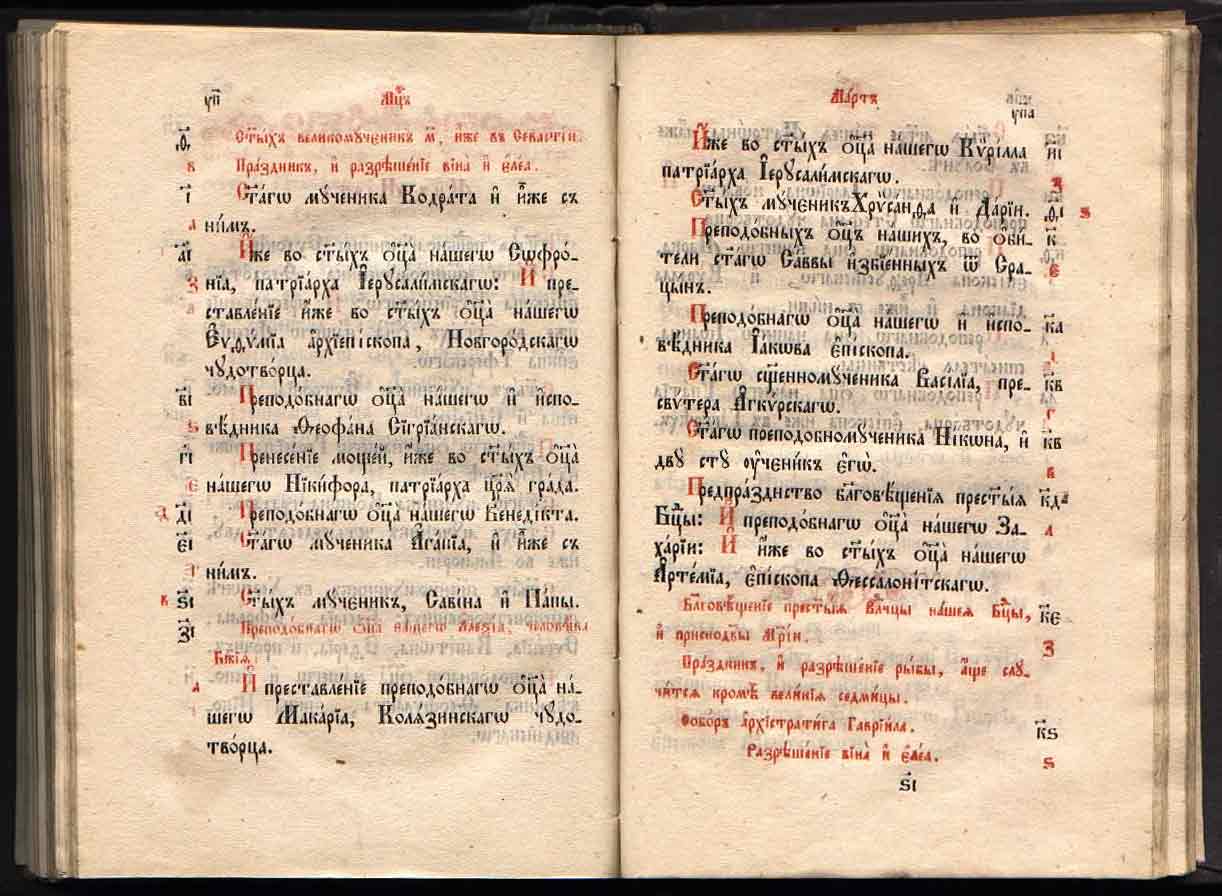 уп҃ Мц҃ъ
ѳ҃ Ст҃ы́хъ великомꙋ́ченикъ м҃, и҆́же въ Севасті́и.
в Пра́здникъ, и҆ разрѣше́нїе вїна̀ и҆ є҆ле́а.
і҃ Ст҃а́гѡ мꙋ́ченика Кодра́та и҆ и҆̀же съ
а ни́мъ.
а҃і И҆̀же во ст҃ы́хъ ѻ҆ц҃а̀ на́шегѡ Сѡфро́-
з нїа, патрїа́рха І҆ерꙋсали́мскагѡ: И҆ пре-
ставле́нїе и҆̀же во ст҃ы́хъ ѻ҆ц҃а̀ на́шегѡ
Є҆ѵѳѵ́мїа а҆рхїепі́скопа, Новгоро́дскагѡ
чꙋдотво́рца.
в҃і Преподо́бнагѡ ѻ҆ц҃а̀ на́шегѡ и҆ и҆спо-
ѕ вѣ́дника Ѳеофа́на Сїгрїа́нскагѡ.
г҃і Пренесе́нїе моще́й, и҆̀же во ст҃ы́хъ ѻ҆ц҃а̀
є на́шегѡ Нїки́фора, патрїа́рха цр҃ѧ̀ гра́да.
д д҃і Преподо́бнагѡ ѻ҆ц҃а̀ на́шегѡ Венеді́кта.
є҃і Ст҃а́гѡ мꙋ́ченика А҆га́пїа, и҆ и҆̀же съ
г ни́мъ.
в ѕ҃і Ст҃ы́хъ мꙋ́ченикъ, Саві́на и҆ Па́пы.
з҃і Преподо́бнагѡ ѻ҆ц҃а̀ на́шегѡ А҆ле́ѯїа, человѣ́ка
Бж҃їѧ:
а И҆ преставле́нїе преподо́бнагѡ ѻ҆ц҃а̀ на́-
шегѡ Мака́рїа, Колѧ́зинскагѡ чꙋдо-
тво́рца.
Ма́ртъ упа
И҆̀же во ст҃ы́хъ ѻ҆ц҃а̀ на́шегѡ Кѷри́лла и҃і
патрїа́рха І҆ерꙋсали́мскагѡ. д
Ст҃ы́хъ мꙋ́ченикъ Хрѷса́нѳа и҆ Да́рїи. ѳ҃і ѕ
Преподо́бныхъ ѻ҆ц҃ъ на́шихъ, во ѻ҆би́- к҃
тели ст҃а́гѡ Са́ввы и҆збїе́нныхъ ѿ Сра- є
цы́нъ.
Преподо́бнагѡ ѻ҆ц҃а̀ на́шегѡ и҆ и҆спо- к҃а
вѣ́дника І҆а́кѡва є҆пі́скопа.
Ст҃а́гѡ сщ҃енномꙋ́ченика Васі́лїа, пре- к҃в
свꙋ́тера А҆гкѵ́рскагѡ. г
Ст҃а́гѡ преподобномꙋ́ченика Ні́кѡна, и҆ к҃в
двꙋ̀ стꙋ̀ ᲂу҆чени́къ є҆гѡ̀. в
Предпра́зднство бл҃говѣ́щенїѧ прест҃ы́ѧ к҃д
Бц҃ы: И҆ преподо́бнагѡ ѻ҆ц҃а̀ на́шегѡ За- а
ха́рїи: И҆ и҆̀же во ст҃ы́хъ ѻ҆ц҃а̀ на́шегѡ
А҆рте́мїа, є҆пі́скопа Ѳессалоні́тскагѡ.
Бл҃говѣ́щенїе прест҃ы́ѧ вл҃чцы на́шеѧ Бц҃ы, к҃є
и҆ приснодв҃ы Мр҃і́и. з
Пра́здникъ, и҆ разрѣше́нїе ры́бы, а҆́ще слꙋ-
чи́тсѧ кромѣ̀ вели́кїѧ седми́цы.
Собо́ръ а҆рхїстрати́га Гаврїи́ла. к҃ѕ
Разрѣше́нїе вїна̀ и҆ є҆ле́а. ѕ
ѕ҃і